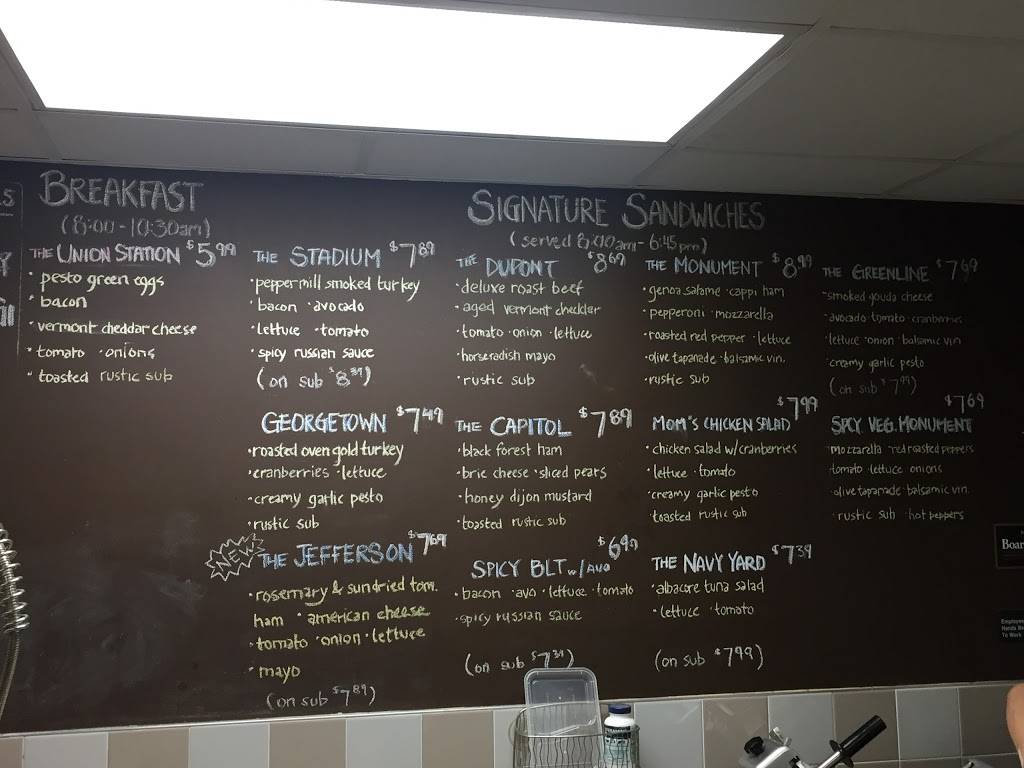 BREAKFAST
(8:00-10:30am)
THE UNION STATION $5.99
• pesto green eggs
• bacon
• vermont cheddar cheese
• tomato • onions
• toasted rustic sub
SIGNATURE SANDWICHES
(served 8:00am - 6:45pm)
THE STADIUM $7.89
• peppermill smoked turkey
• bacon • avocado
• lettuce • tomato
• spicy russian sauce
(on sub $8.39)
THE DUPONT $8.69
• deluxe roast beef
• aged vermont cheddar
• tomato • onion • lettuce
• horseradish mayo
• rustic sub
THE MONUMENT $8.99
• genoa salame • cappi ham
• pepperoni • mozzarella
• roasted red pepper • lettuce
• olive tapanade • balsamic vin.
• rustic sub
THE GREENLINE $7.69
• smoked gouda cheese
• avocado tomato • cranberries
• lettuce • onion • balsamic vin
creamy garlic pesto
(on sub $7.99)
GEORGETOWN $7.49
• roasted oven gold turkey
• cranberries • lettuce
• creamy garlic pesto
• rustic sub
THE CAPITOL $7.89
• black forest ham
• brie cheese • sliced pears
• honey dijon mustard
• toasted rustic sub
MOM'S CHICKEN SALAD $7.99
• chicken salad w/cranberries
• lettuce • tomato
• creamy garlic pesto
toasted rustic sub
SPCY VEG. MONUMENT $7.69
mozzarella red roasted peppers
tomato lettuce onions
• olive tapanade • balsamic vin.
• rustic sub • hot peppers
NEW
THE JEFFERSON $7.69
• rosemary & sundried tom.
ham • american cheese
• tomato • onion • lettuce
• mayo
(on sub $7.89)
SPICY BLT w/ AVO $6.99
• bacon • avo • lettuce • tomato
• spicy russian sauce
(on sub $7.39)
THE NAVY YARD $7.39
• albacore tuna salad
• lettuce • tomato
(on sub $7.99)
Boar
Employee
Hands Be
To Work